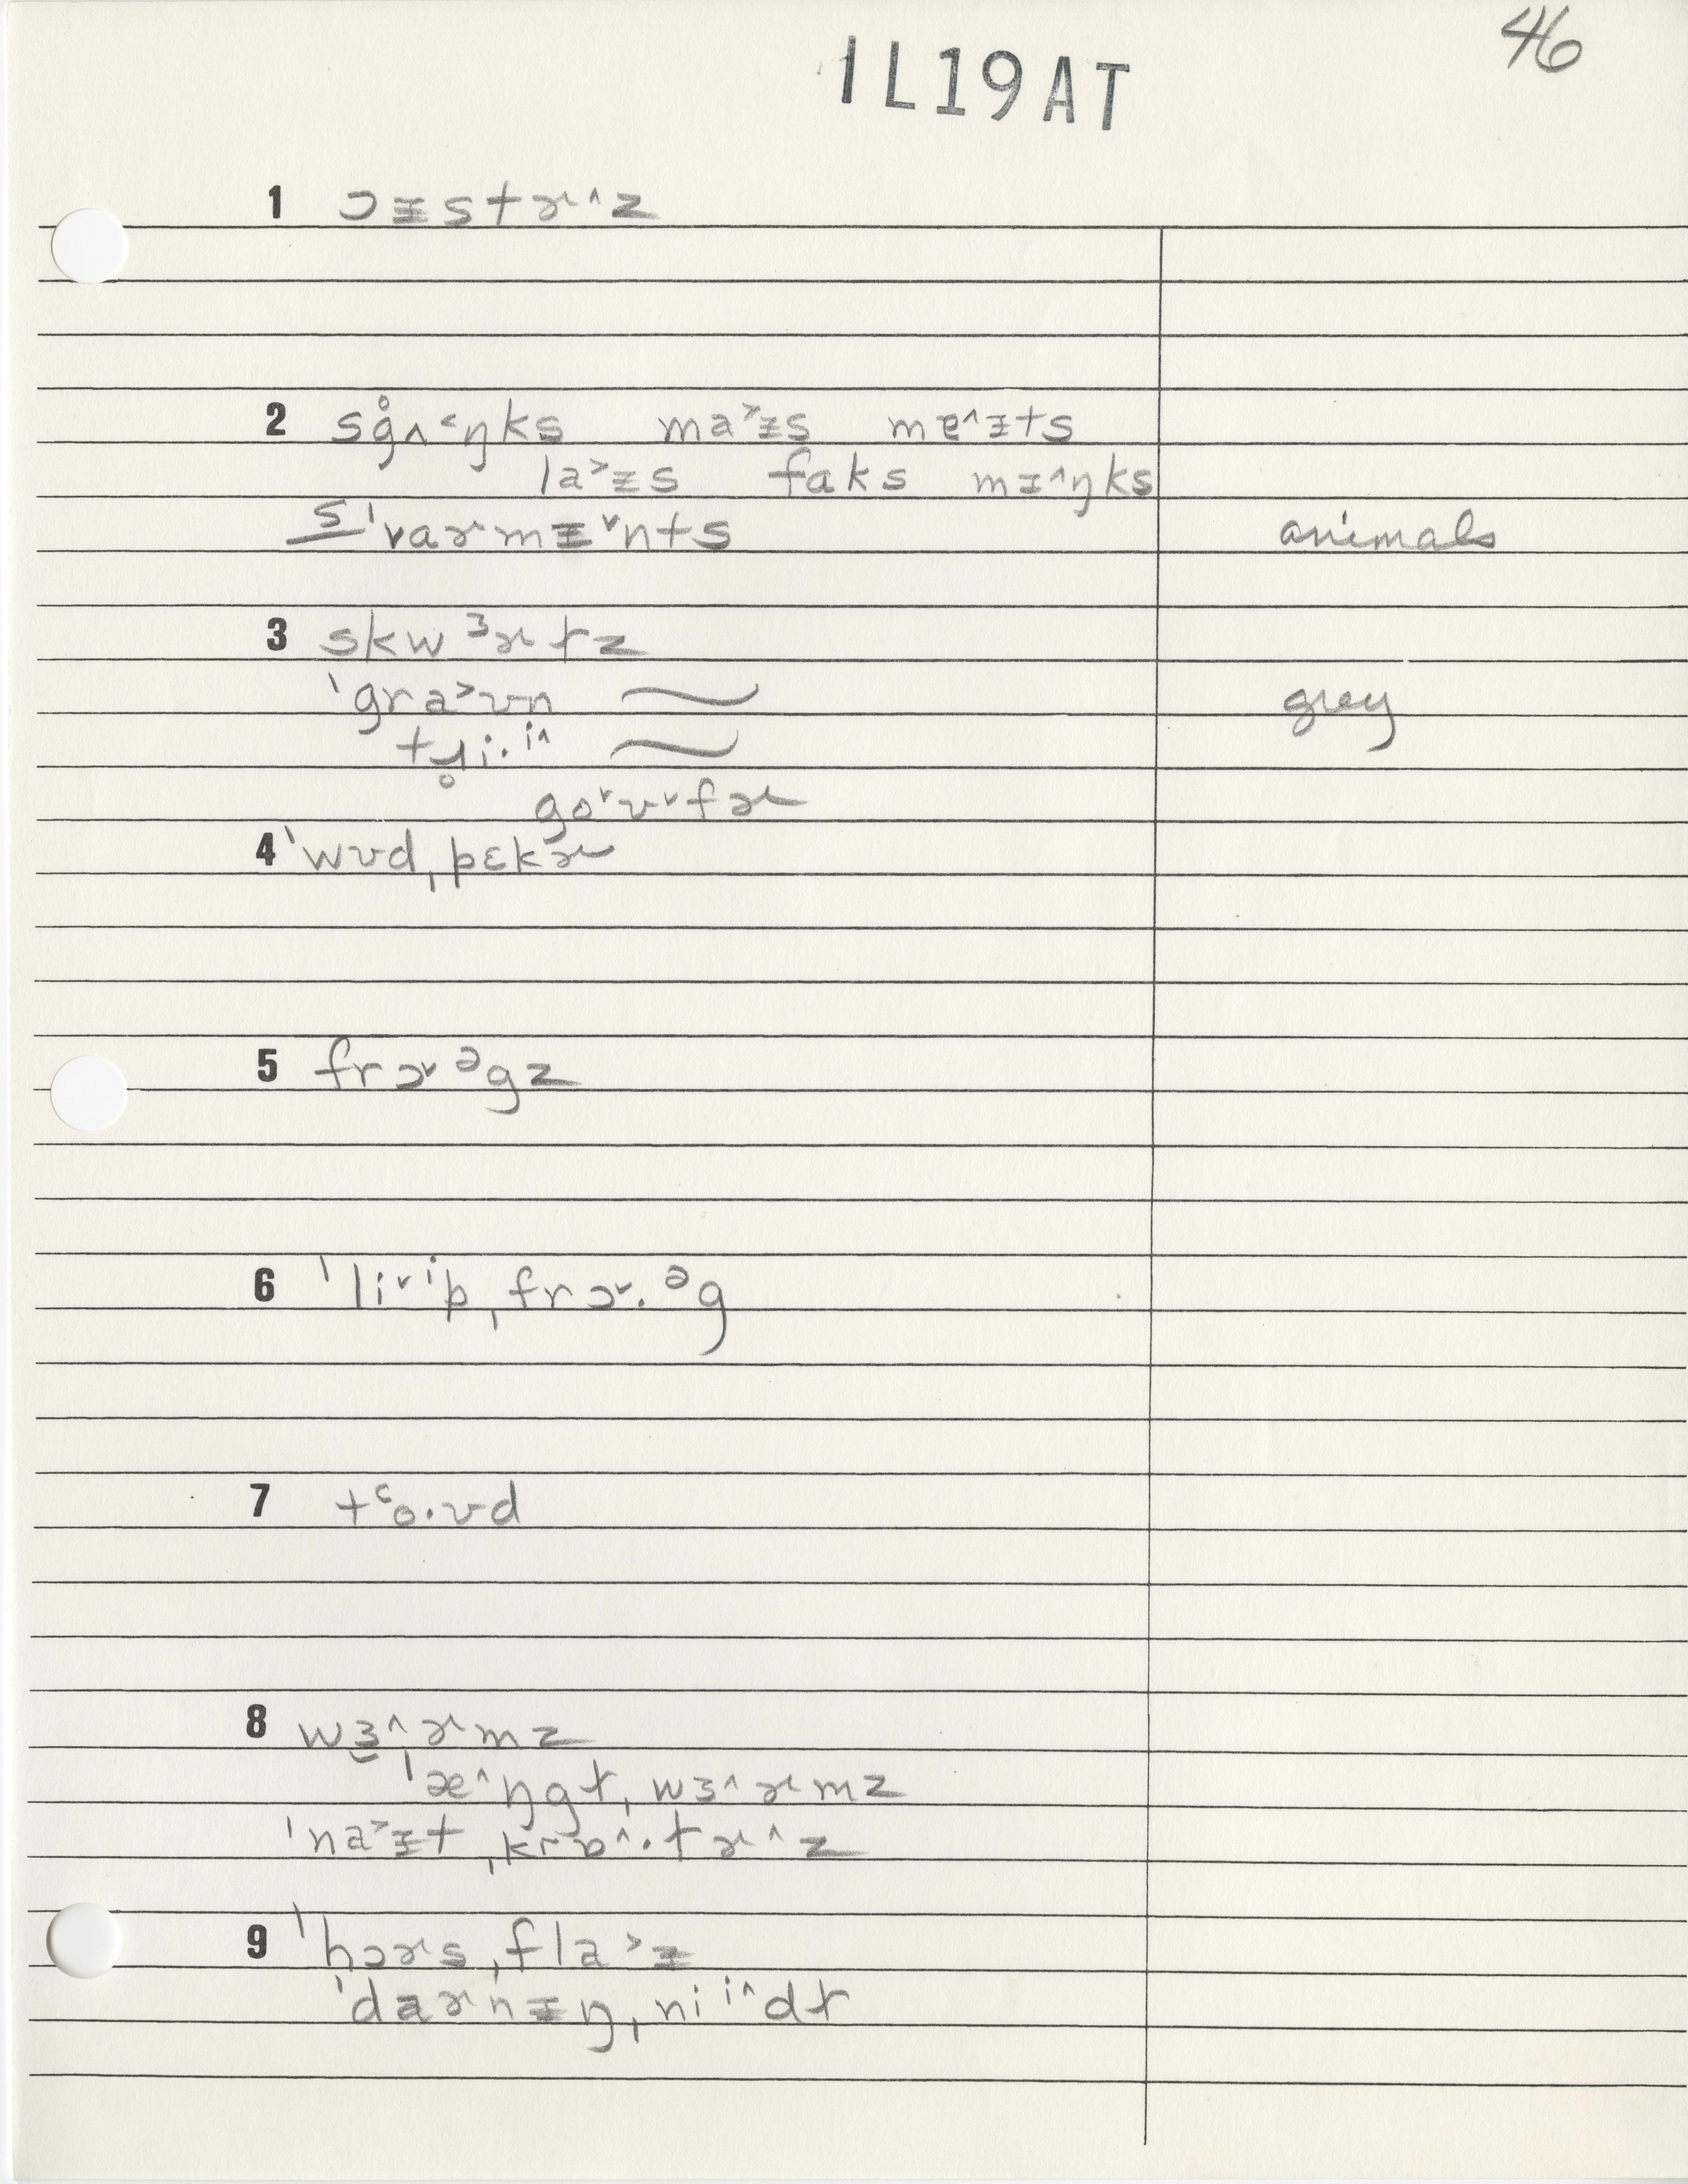 46
1L19AT
1 ɔɪstɚ˄z
2 sg̊ʌ˂ŋks ma˃ɪs mɐ˄ɪts
la˃ɪs faks mɪ˄ŋks
s ˈvaɚmɪ˅nts animals
3 skw³ɚɫz
ˈgra˃ʊn ~ grey
tɥ̊i·i˄ ~
go˅ʊ˅fɚ
4 ˈwʊdˌpɛkɚ
5 frɔ˅ᵊgz
6 ˈli˅ⁱpˌfrɔ˅·ᵊg
7 tʿo·ʊd
8 wɜ̮˄ɚmz
ˈæ˄ŋgɫˌwɜ˄ɚmz
ˈna˃ɪtˌkrɒ˄·ɫɚ˄z
9 ˈhɔɚsˌfla˃ɪ
ˈdaɚnɪŋˌniⁱ˄dɫ